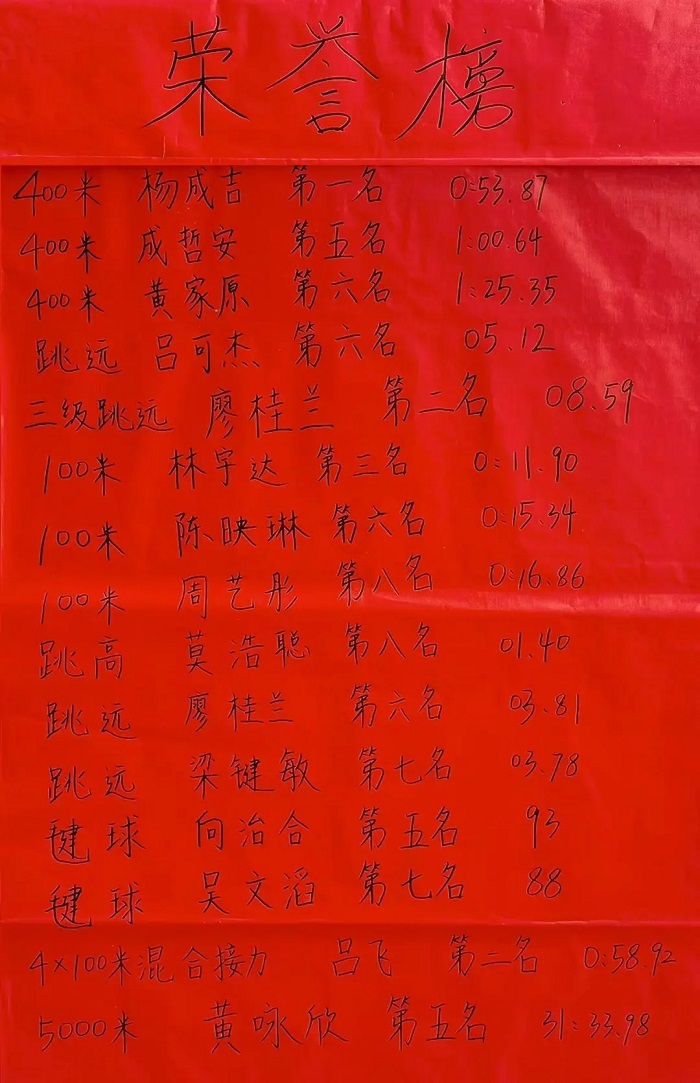 荣誉榜
400米 杨成吉 第一名 0:53.87
400米 成哲安 第五名 1:00.64
400米 黄家原 第六名 1:25.35
跳远 吕可杰 第六名 05.12
三级跳远 廖桂兰 第二名 08.59
100米 林宇达 第三名 0:11.90
100米 陈映琳 第六名 0:15.34
100米 周艺彤 第八名 0:16.86
跳高 莫浩聪 第八名 01.40
跳远 廖桂兰 第六名 03.81
跳远 梁键敏 第七名 03.78
毽球 向治合 第五名 93
毽球 吴文滔 第七名 88
4×100米混合接力 吕飞 第二名 0:58.92
5000米 黄咏欣 第五名 31:33.98